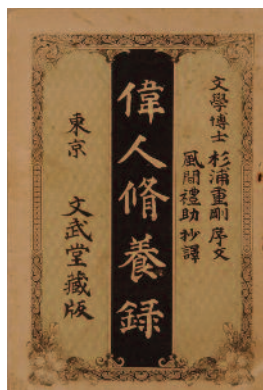 文學博士 杉浦重剛 序文
風間禮助 抄譯
偉人脩養録
東京 文武堂藏版